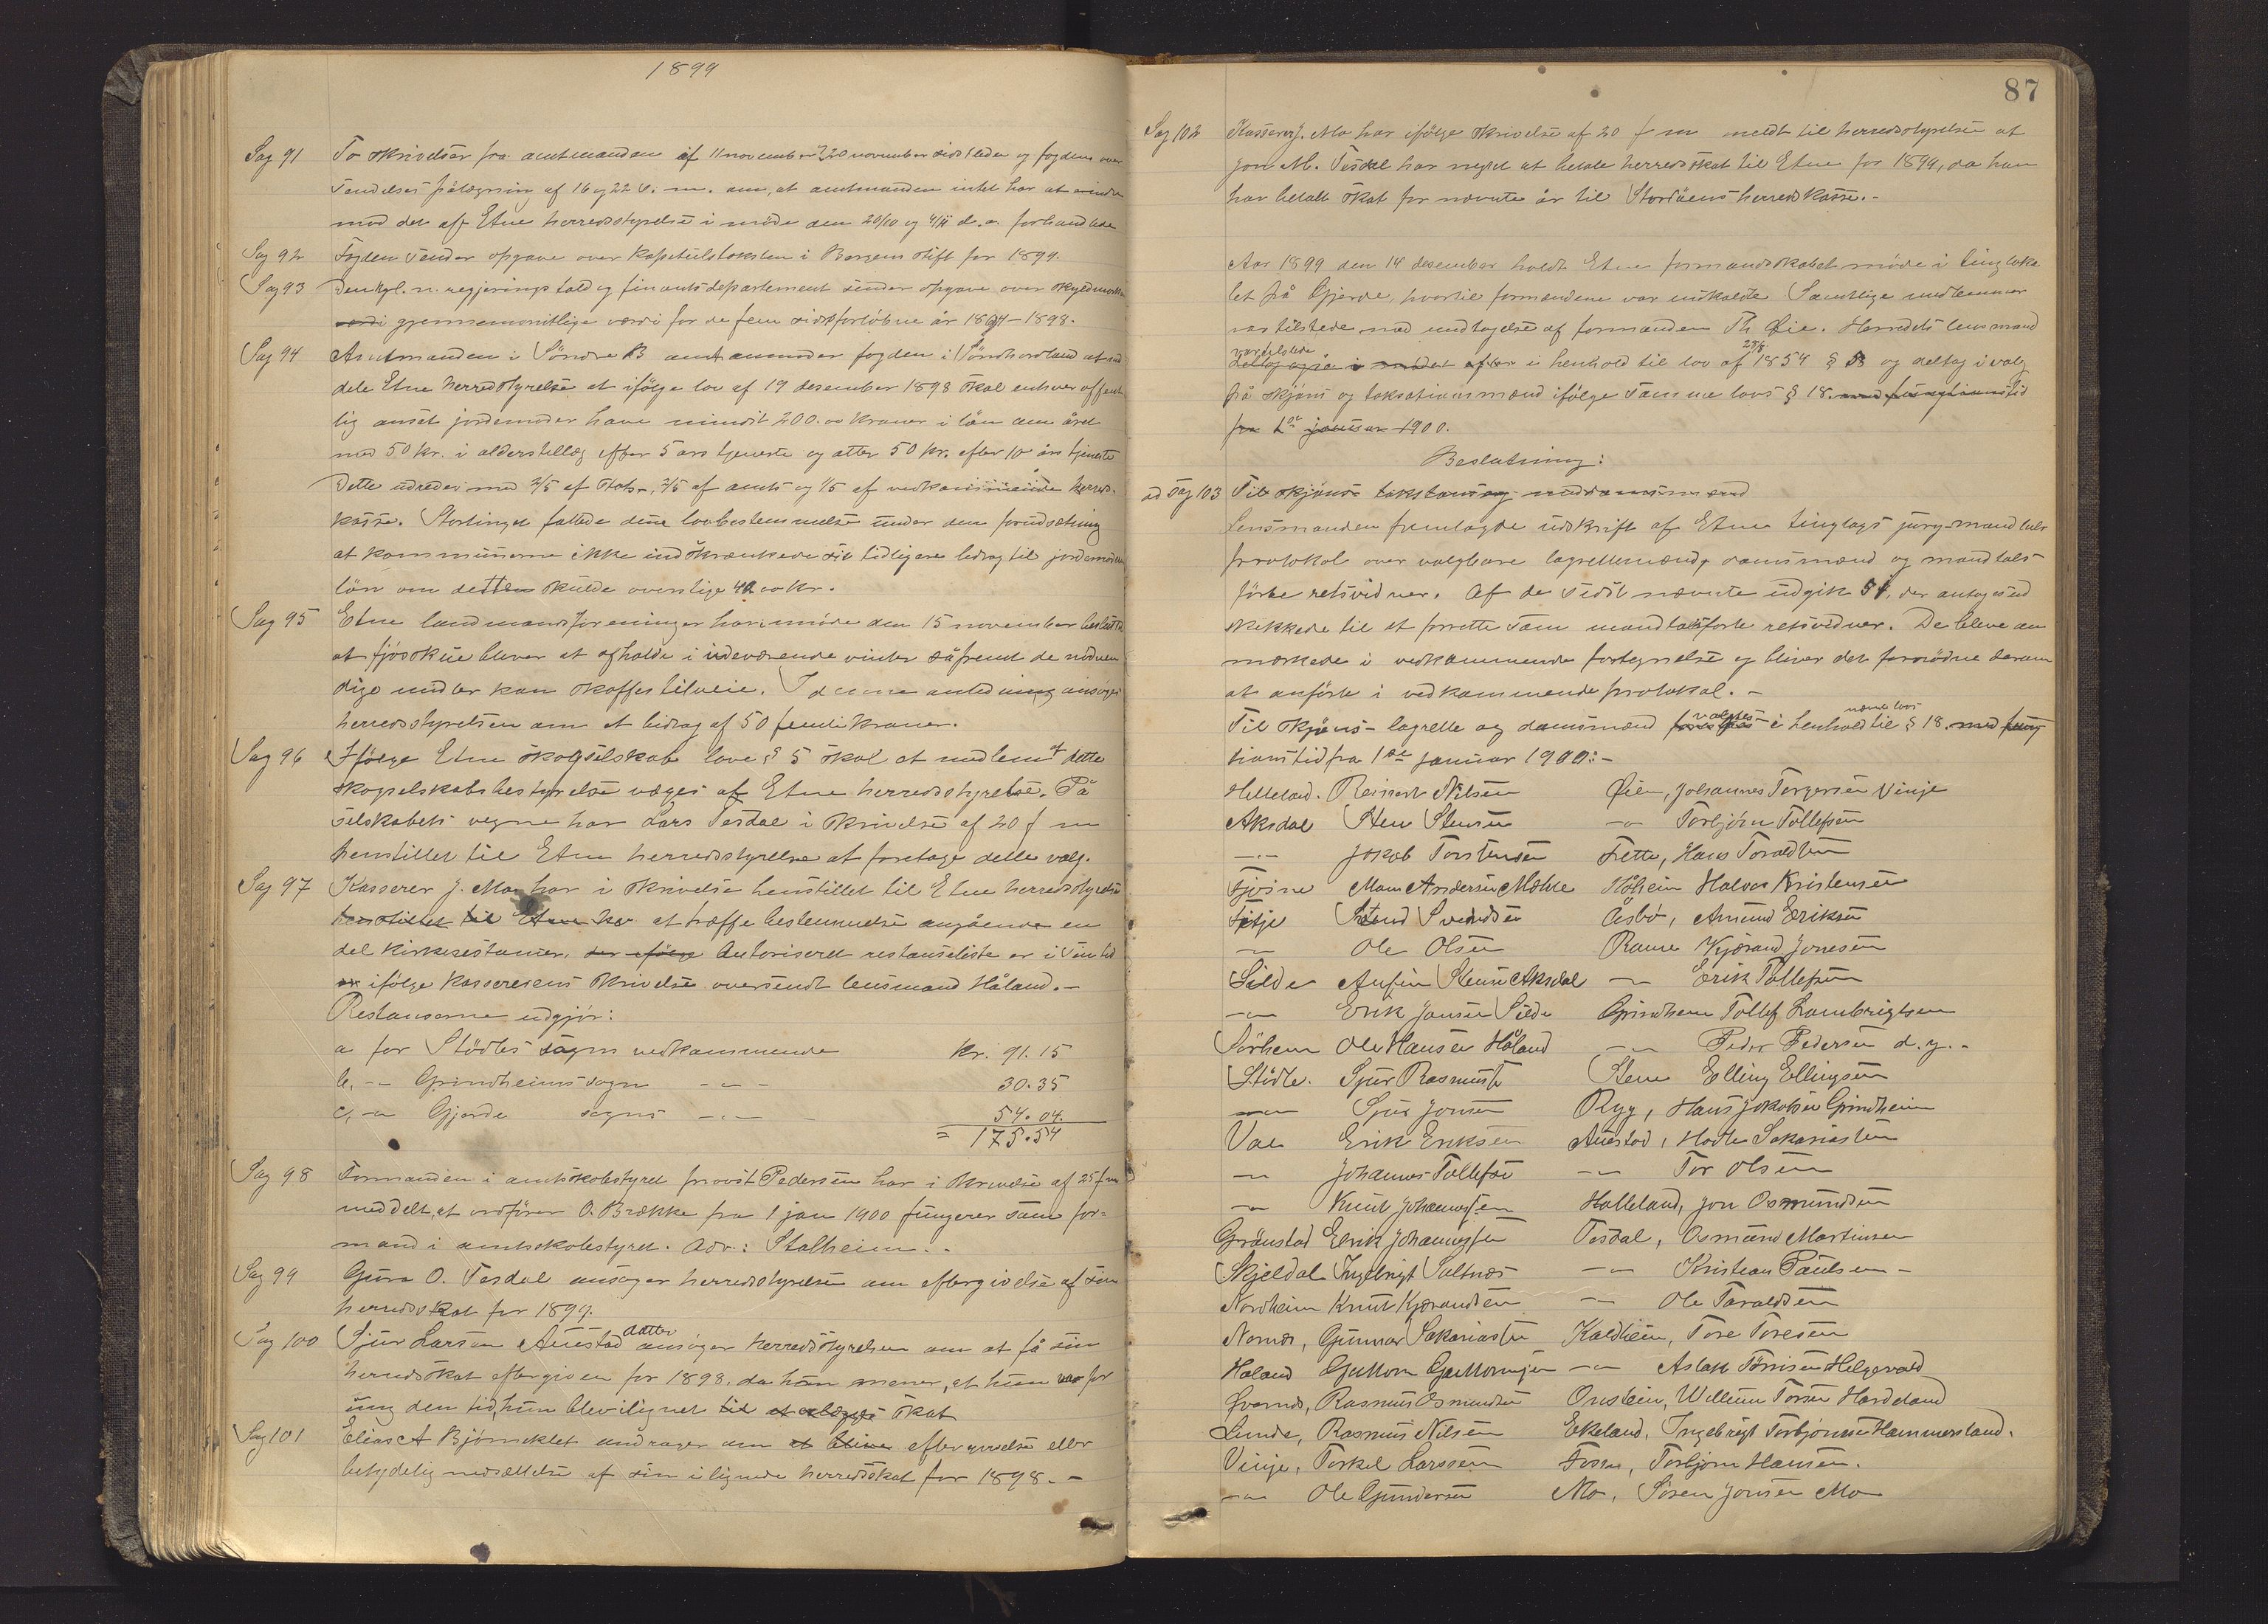 1899
Sag 91 To skrivelser fra amtmanden af 11 november & 20 november sidstleden og fogdens over
sendelses påtegning af 16 og 22 s. m. om, at amtmanden intet har at erindre
mod det af Etne herredsstyrelse i møde den 20/10 og 4/11 d. a. forhandlede
Sag 92 Fogden sender opgave over kapitelstaksten i Bergens stift for 1899.
Sag 93 Den kgl. n. regjerings told og finantsdepartement sender opgave over skyldmarkens
værdi gjennemsnitlige værdi for de fem sidstforløbne år 1894-1898.
Sag 94 Amtmanden i Söndre B amt anmoder fogden i Söndhordland at med
dele Etne herredstyrelse at ifölge lov af 19 desember 1898 skal enhver offent
lig ansat jordemoder have mindst 200.00 kroner i lön om året
med 50 kr. i alderstillæg efter 5 års tjeneste og atter 50 kr. efter 10 års tjeneste
Dette udredes med 2/5 af stats-, 2/5 af amts og 1/5 af vedkommende herreds
kasse. Stortinget fattede denne lovbestemmelse under den forudsætning
at kommunerne ikke indskrænkede sit tidligere bidrag til jordemoder
lön om dette skulde overstige 40.00 kr.
Sag 95 Etne landmandsforeninger har i møde den 15 november besluttet
at fjösskue bliver at afholde i indeværende vinter såfremt de nödven
dige midler kan skaffes tilveie. I denne anledning ansöges
herredsstyrelsen om et bidrag af 50 femti kroner.
Sag 96 Ifølge Etne skogselskabs love § 5 skal et medlem af dette
skogselskabs bestyrelse vælges af Etne herredsstyrelse. På
selskabets vegne har Lars Tesdal i skrivelse af 20 f m
henstillet til Etne herredsstyrelse at foretage dette valg.
Sag 97 Kasserer J. Mo har i skrivelse henstillet til Etne herredsstyrelse
henstillet til Etne her at træffe bestemmelse angående en
del kirkerestancer. der ifølge Autoriseret restanseliste er i sin tid
er ifölge kassererens skrivelse oversendt lensmand Håland.-
Restanserne udgjör:
a for Stödles sogns vedkommende kr. 91.15
b, -"- Grindheims sogn -"- 30.35
c, -"- Gjerde sogns -"- 54.04.
= 175.54
Sag 98 Formanden i amtsskolestyret provst Pedersen har i skrivelse af 25 f m
meddelt, at ordförer O. Brække fra 1 jan 1900 fungerer som for-
mand i amtsskolestyret. Adr.: Stalheim.
Sag 99 Guro O. Tesdal ansöger herredsstyrelsen om eftergivelse af sin
herredsskat for 1899.
Sag 100 Sjur Larsen Austad datter ansöger herredsstyrelsen om at få sin
herredsskat eftergiven for 1898. da hun mener, at hun var for
ung den tid, hun blev ilignet til at erlægge skat
Sag 101 Elias A Bjørneklet andrager om at blive eftergivelse eller
betydelig nedsættelse af sin ilignede herredsskat for 1898. -
87
Sag 102 Kasserer J. Mo har ifölge skrivelse af 20 f m meldt til herredsstyrelsen at
Jon M. Tesdal har negtet at betale herredsskat til Etne for 1899, da han
har betalt skat for nævnte år til Stordöens herredskasse.-
Aar 1899 den 14 desember holdt Etne formandsskabet møde i tingloka
let på Gjerde, hvortil formændene var indkaldte. Samtlige medlemmer
var tilstede med undtagelse af formanden Th. Øie. Herredets lensmand
var tilstede
deltog også i mödet efter i henhold til lov af 28/8 1854 § 53 og deltog i valg
på skjöns og taksationsmænd ifölge samme lovs § 18. med fungtionstid
fra 1ste januar 1900.
Beslutning:
ad sag 103 Til skjöns- takstions og meddomsmænd
Lensmanden fremlagde udskrift af Etne tinglags jury-mandtals
protokol over valgbare lagrettemænd, domsmænd og mandtals-
förte retsvidner. Af de sidst nævnte udgik 51, der antoges ud
skikkede til at forrette som mandtalsförte retsvidner. De bleve an
mærkede i vedkommende fortegnelse og bliver det fornödne derom
at anföre i vedkommende protokol.-
Til skjöns- lagrette og domsmænd foresloges valgtes i henhold til nævnte lovs § 18. med fung
tionstid fra 1ste januar 1900:-
Helleland. Reinert Nilsen Øien, Johannes Torgersen Vinje
Aksdal Sten Stensen -"- Torbjörn Tollefsen
-"- Jakob Torstensen Frette, Hans Toraldsen
Fjösne Mons Andersen Mæhle Håheim Halvor Kristensen
Fitje Svend Svendsen Åsbö, Amund Eriksen
-"- Ole Olsen Rame Kjærand Jonesen
Silde Anfin Stensen Aksdal -"- Eerik Tollefsen
-"- Erik Jansen Silde Grindheim Tollef Lambrigtsen
Sörheim Ole Hansen Håland -"- Peder Pedersen d.y.-
Stödle. Sjur Rasmusen Stene Elling Ellingsen
-"- Sjur Jonsen Ryg, Hans Jakobsen Grindheim
Vae Erik Eriksen Austad, Hodne Sakariassen
-"- Johannes Tollefsen -"- Tor Olsen
-"- Knut Johannessen Halleland, Jon Osmundsen
Grönstad Elrik Johannessen Tesdal, Osmund Martinsen
Skjeldal Ingebrigt Saltnes -"- Kristian Paulsen-
Nordheim Knut Kjærandsen -"- Ole Taraldsen
Nernes, Gunnar Sakariassen Kaldheim, Tore Toresen
Håland Guttorm Guttormsen -"- Aslak Törrisen Helgevold
Kvernes, Rasmus Osmundsen Onstein, Willum Torsen Hardeland
Lunde, Rasmus Nilsen Ekeland, Ingebrigt Torbjörnsen Hammersland.
Vinje, Torkel Larssen Fosse, Torbjörn Hansen.
-"- Ole Gundersen Mo, Sören Jonsen Mo